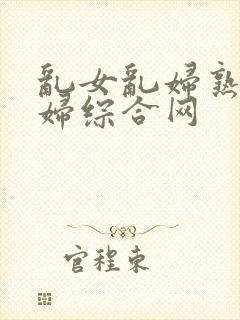 乱女乱婦熟
婦综合网
官程東